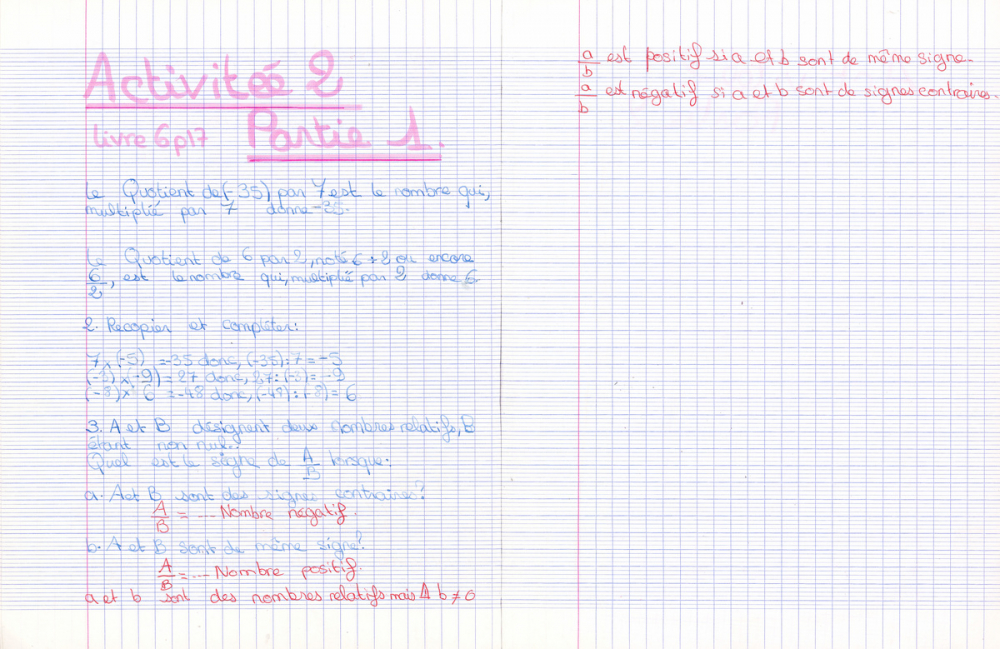 Activiteé 2
livre 6p17 Partie 1.
Le Quotient de(-35) par 7 est le nombre qui,
multiplié par 7 donne -35.
Le Quotient de 6 par 2, noté 6 ÷ 2 ou encore
6/2, est le nombre qui, multiplié par 2 donne 6
2. Recopier et compléter:
7 x (-5) = -35 donc, (-35) : 7 = -5
(-3) x (-9) = 27 donc, 27 : (-3) = -9
(-8) x 6 = -48 donc, (-48) : (-8) = 6
3. A et B désignent deux nombres relatifs, B
étant non nul.
Quel est le signe de A/B lorsque:
a. A et B sont des signes contraires?
A/B = ... Nombre négatif.
b. A et B sont de même signe?
A/B = ... Nombre positif.
a et b sont des nombres relatifs mais b ≠ 0
a/b est positif si a et b sont de même signe.
a/b est négatif si a et b sont de signes contraires.